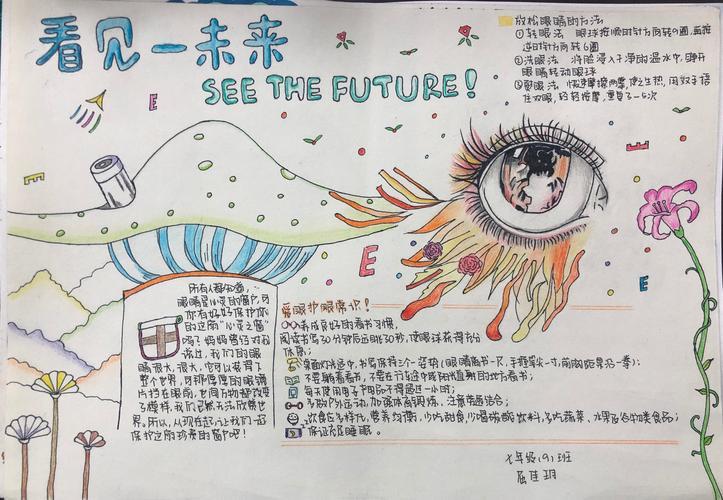 看见一未来
SEE THE FUTURE!
放松眼睛的方法
①转眼法 眼球按顺时针方向转6圈,再按
逆时针方向转6圈
②洗眼法 将脸浸入干净的温水中,睁开
眼睛转动眼球
③熨眼法 快速摩擦两掌,使之生热,用双手捂
住双眼,轻轻按摩,重复了一5次
E
E
E
E
E
所有人都知道,
眼睛是心灵的窗户,可
你有好好保护你
的这扇“心灵之窗”
吗?妈妈曾经对我
说过,我们的眼
睛很大,很大,它可以装得下
整个世界,可那厚厚的眼镜
片挡在眼前,世间万物都改变
了模样,我们已然无法欣赏世
界。所以,从现在起,让我们一起
保护这份珍贵的窗户吧!
爱眼护眼常识!
养成良好的看书习惯,
阅读书写30分钟后远眺30秒,使眼球获得充分
休息;
桌面灯光适中,书写保持三个姿势(眼睛离书一尺,手握笔尖一寸,前胸距桌沿一拳);
不要躺着看书,不要在行走途中或阳光直射的地方看书;
每天使用电子产品不得超过一小时;
多做户外运动,加强体育锻炼,注意劳逸结合;
饮食应多样化,营养均衡,少吃甜食,少喝碳酸饮料,多吃蔬菜、水果及谷物类食品;
保证充足睡眠。
七年级(9)班
屈佳玥